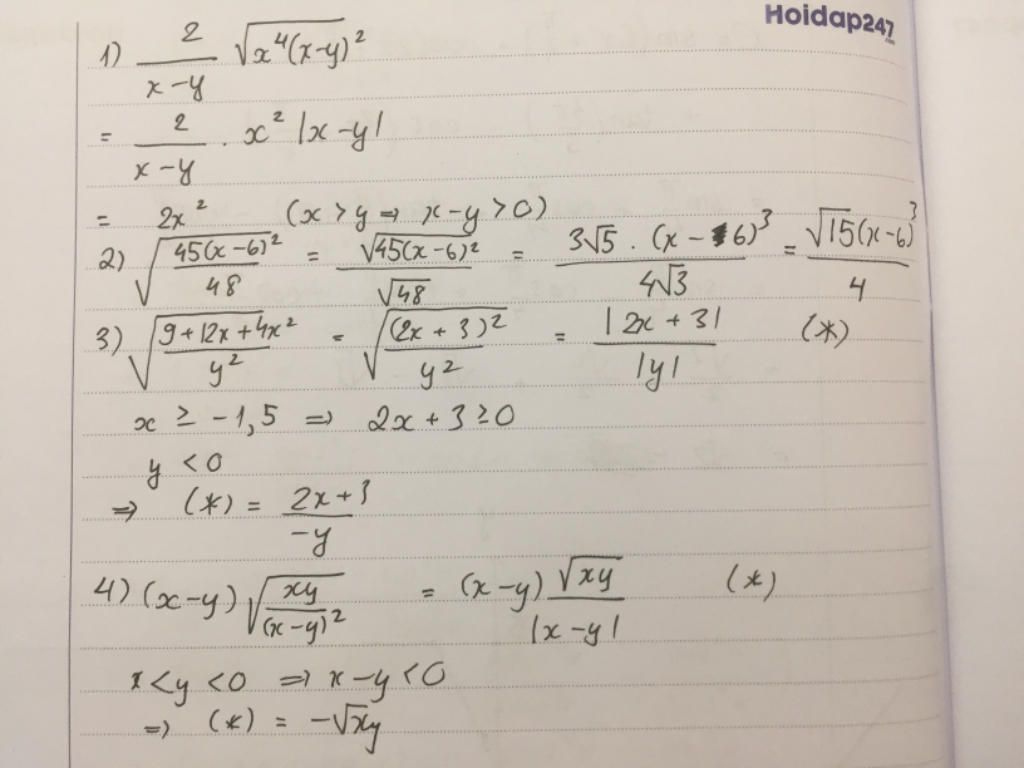 Hoidap247.com
1) 2/(x-y) √(x⁴(x-y)²)
= 2/(x-y) . x² |x-y|
= 2x² (x > y ⇒ x-y > 0)
2) √(45(x-6)²/48) = √(45(x-6)²)/√48 = 3√5 . (x-6)³/(4√3) = √15(x-6)³/4
3) √((9+12x+4x²)/y²) = √((2x+3)²/y²) = |2x+3|/|y| (*)
x ≥ -1,5 ⇒ 2x+3 ≥ 0
y < 0
⇒ (*) = (2x+3)/(-y)
4) (x-y)√(xy/(x-y)²) = (x-y) √(xy)/|x-y| (*)
x < y < 0 ⇒ x-y < 0
⇒ (*) = -√xy